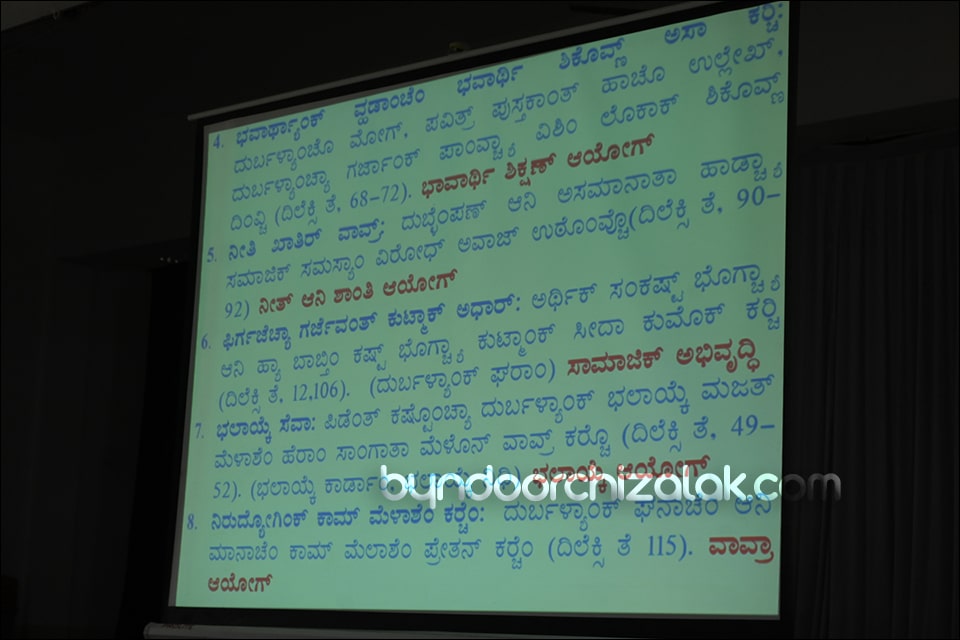 4. ಭವಾರ್ಥ್ಯಾಂಕ್ ವ್ಹಡಾಂಚೆಂ ಭವಾರ್ಥಿ ಶಿಕೊವ್ಣ್ ಅಸಾ ಕರ್‍ಚಿ:
ದುರ್ಬಳ್ಯಾಂಚೊ ಮೋಗ್, ಪವಿತ್ರ್ ಪುಸ್ತಕಾಂತ್ ಹಾಚೊ ಉಲ್ಲೇಖ್,
ದುರ್ಬಳ್ಯಾಂಚ್ಯಾ ಗರ್ಜಾಂಕ್ ಪಾಂವ್ಚ್ಯಾ ವಿಶಿಂ ಲೊಕಾಕ್ ಶಿಕೊವ್ಣ್
ದಿಂವ್ಚಿ (ದಿಲೆಕ್ಸಿ ತೆ, 68-72). ಭಾವಾರ್ಥಿ ಶಿಕ್ಷಣ್ ಆಯೋಗ್
5. ನೀತಿ ಖಾತಿರ್ ವಾವ್ರ್: ದುಬ್ಳೆಂಪಣ್ ಆನಿ ಅಸಮಾನಾತಾ ಹಾಡ್ಚ್ಯಾ
ಸಮಾಜಿಕ್ ಸಮಸ್ಯಾಂ ವಿರೋಧ್ ಅವಾಜ್ ಉಠೊಂವ್ಚೊ(ದಿಲೆಕ್ಸಿ ತೆ, 90-
92) ನೀತ್ ಆನಿ ಶಾಂತಿ ಆಯೋಗ್
6. ಫಿರ್ಗಜೆಚ್ಯಾ ಗರ್ಜೆವಂತ್ ಕುಟ್ಮಾಕ್ ಅಧಾರ್: ಅರ್ಥಿಕ್ ಸಂಕಷ್ಟ್ ಭೊಗ್ಚ್ಯಾ
ಆನಿ ಹ್ಯಾ ಬಾಬ್ತಿಂ ಕಷ್ಟ್ ಭೊಗ್ಚ್ಯಾ ಕುಟ್ಮಾಂಕ್ ಸೀದಾ ಕುಮೊಕ್ ಕರ್‍ಚಿ
(ದಿಲೆಕ್ಸಿ ತೆ, 12,106). (ದುರ್ಬಳ್ಯಾಂಕ್ ಘರಾಂ) ಸಾಮಾಜಿಕ್ ಅಭಿವೃದ್ಧಿ
7. ಭಲಾಯ್ಕೆ ಸೇವಾ: ಪಿಡೆಂತ್ ಕಷ್ಟೊಂಚ್ಯಾ ದುರ್ಬಳ್ಯಾಂಕ್ ಭಲಾಯ್ಕೆ ಮಜತ್
ಮೆಳಾಶೆಂ ಹೆರಾಂ ಸಾಂಗಾತಾ ಮೆಳೊನ್ ವಾವ್ರ್ ಕರ್‍ಚೊ (ದಿಲೆಕ್ಸಿ ತೆ, 49-
52). (ಭಲಾಯ್ಕೆ ಕಾರ್ಡಾಂ, ಭಲಾಯ್ಕೆ ಆಯೋಗ್
byndoorchizalak.com
8. ನಿರುದ್ಯೋಗಿಂಕ್ ಕಾಮ್ ಮೆಳಾಶೆಂ ಕರ್‍ಚೆಂ: ದುರ್ಬಳ್ಯಾಂಕ್ ಘನಾಚೆಂ ಆನಿ
ಮಾನಾಚೆಂ ಕಾಮ್ ಮೆಲಾಶೆಂ ಪ್ರೇತನ್ ಕರ್‍ಚೆಂ (ದಿಲೆಕ್ಸಿ ತೆ 115). ವಾವ್ರಾ
ಆಯೋಗ್